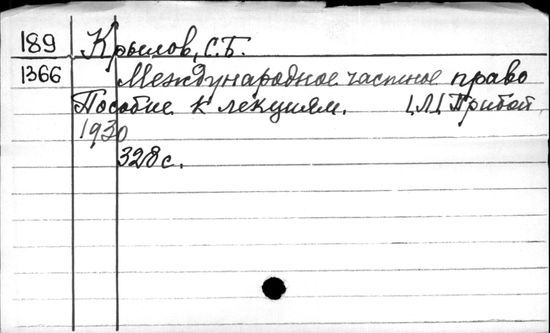 189 Крылов, С.Б.
1366 Международное частное право
Пособие к лекциям. [Л] Прибой
1930
328 с.